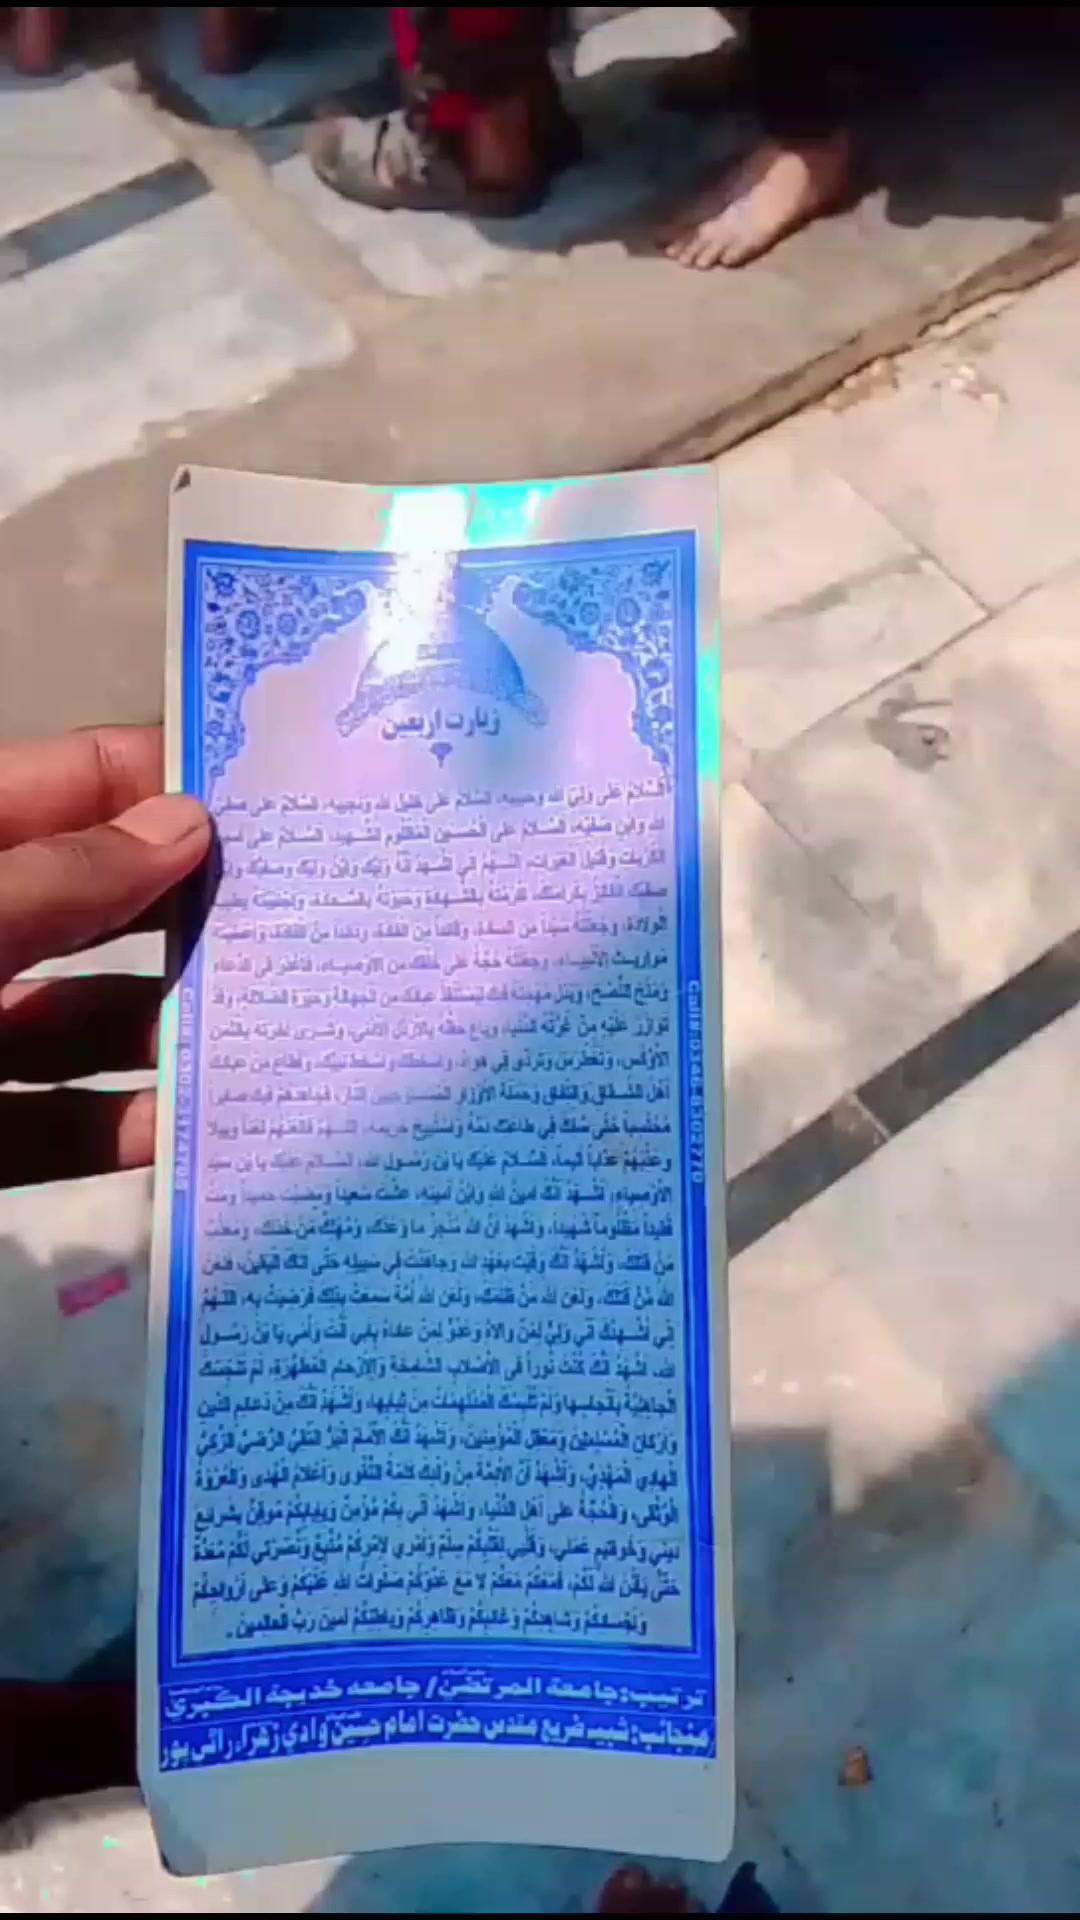 زیارت اربعین
اَلسَّلامُ عَلى وَلِيِّ اللهِ وَحَبِيبِهِ، اَلسَّلامُ عَلى خَلِيلِ اللهِ وَنَجِيبِهِ، اَلسَّلامُ عَلى صَفِيِّ
اللهِ وَابْنِ صَفِيِّهِ، اَلسَّلامُ عَلى الْحُسَيْنِ الْمَظْلُومِ الشَّهِيدِ، اَلسَّلامُ عَلى اَسِيرِ
الْكُرُباتِ وَقَتِيلِ الْعَبَراتِ، اَللّهُمَّ اِنّي اَشْهَدُ اَنَّهُ وَلِيُّكَ وَابْنُ وَلِيِّكَ وَصَفِيُّكَ وَابْنُ
صَفِيِّكَ الْفائِزُ بِكَرامَتِكَ، اَكْرَمْتَهُ بِالشَّهادَةِ وَحَبَوْتَهُ بِالسَّعادَةِ، وَاجْتَبَيْتَهُ بِطِيبِ
الْوِلادَةِ، وَجَعَلْتَهُ سَيِّداً مِنَ السادَةِ، وَقائِداً مِنَ الْقادَةِ، وَذائِداً مِنَ الذادَةِ، وَاَعْطَيْتَهُ
مَوارِيثَ الأَنْبِياءِ، وَجَعَلْتَهُ حُجَّةً عَلى خَلْقِكَ مِنَ الأَوْصِياءِ، فَاَعْذَرَ فِي الدُّعاءِ
وَمَنَحَ النُّصْحَ، وَبَذَلَ مُهْجَتَهُ فِيكَ لِيَسْتَنْقِذَ عِبادَكَ مِنَ الْجَهالَةِ وَحَيْرَةِ الضَّلالَةِ، وَقَدْ
تَوازَرَ عَلَيْهِ مَنْ غَرَّتْهُ الدُّنْيا، وَباعَ حَظَّهُ بِالأَرْذَلِ الأَدْنى، وَشَرى آخِرَتَهُ بِالثَّمَنِ
الأَوْكَسِ، وَتَغَطْرَسَ وَتَرَدّى فِي هَواهُ، وَاَسْخَطَكَ وَاَسْخَطَ نَبِيَّكَ، وَاَطاعَ مِنْ عِبادِكَ
اَهْلَ الشِّقاقِ وَالنِّفاقِ وَحَمَلَةَ الأَوْزارِ الْمُسْتَوْجِبِينَ النّارَ، فَجاهَدَهُمْ فِيكَ صابِراً
مُحْتَسِباً حَتّى سُفِكَ فِي طاعَتِكَ دَمُهُ وَاسْتُبِيحَ حَرِيمُهُ، اَللّهُمَّ فَالْعَنْهُمْ لَعْناً وَبِيلاً
وَعَذِّبْهُمْ عَذاباً اَلِيماً، اَلسَّلامُ عَلَيْكَ يا بْنَ رَسُولِ اللهِ، اَلسَّلامُ عَلَيْكَ يا بْنَ سَيِّدِ
الأَوْصِياءِ، اَشْهَدُ اَنَّكَ اَمِينُ اللهِ وَابْنُ اَمِينِهِ، عِشْتَ سَعِيداً وَمَضَيْتَ حَمِيداً وَمُتَّ
فَقِيداً مَظْلُوماً شَهِيداً، وَاَشْهَدُ اَنَّ اللهَ مُنْجِزٌ ما وَعَدَكَ، وَمُهْلِكٌ مَنْ خَذَلَكَ، وَمُعَذِّبٌ
مَنْ قَتَلَكَ، وَاَشْهَدُ اَنَّكَ وَفَيْتَ بِعَهْدِ اللهِ وَجاهَدْتَ فِي سَبِيلِهِ حَتّى اَتاكَ الْيَقِينُ، فَلَعَنَ
اللهُ مَنْ قَتَلَكَ، وَلَعَنَ اللهُ مَنْ ظَلَمَكَ، وَلَعَنَ اللهُ اُمَّةً سَمِعَتْ بِذلِكَ فَرَضِيَتْ بِهِ، اَللّهُمَّ
اِنّي اُشْهِدُكَ اَنّي وَلِيٌّ لِمَنْ والاهُ وَعَدُوٌّ لِمَنْ عاداهُ بِاَبِي اَنْتَ وَاُمّي يا بْنَ رَسُولِ
اللهِ، اَشْهَدُ اَنَّكَ كُنْتَ نُوراً فِي الأَصْلابِ الشّامِخَةِ وَالأَرْحامِ الْمُطَهَّرَةِ، لَمْ تُنَجِّسْكَ
الْجاهِلِيَّةُ بِاَنْجاسِها وَلَمْ تُلْبِسْكَ الْمُدْلَهِمّاتُ مِنْ ثِيابِها، وَاَشْهَدُ اَنَّكَ مِنْ دَعائِمِ الدِّينِ
وَاَرْكانِ الْمُسْلِمِينَ وَمَعْقِلِ الْمُؤْمِنِينَ، وَاَشْهَدُ اَنَّكَ الإِمامُ الْبَرُّ التَّقِيُّ الرَّضِيُّ الزَّكِيُّ
الْهادِي الْمَهْدِيُّ، وَاَشْهَدُ اَنَّ الأَئِمَّةَ مِنْ وُلْدِكَ كَلِمَةُ التَّقْوى وَاَعْلامُ الْهُدى وَالْعُرْوَةُ
الْوُثْقى، وَالْحُجَّةُ عَلى اَهْلِ الدُّنْيا، وَاَشْهَدُ اَنّي بِكُمْ مُؤْمِنٌ وَبِاِيابِكُمْ مُوقِنٌ بِشَرايِعِ
دِينِي وَخَواتِيمِ عَمَلِي، وَقَلْبِي لِقَلْبِكُمْ سِلْمٌ وَاَمْرِي لأَمْرِكُمْ مُتَّبِعٌ وَنُصْرَتِي لَكُمْ مُعَدَّةٌ
حَتّى يَأْذَنَ اللهُ لَكُمْ، فَمَعَكُمْ مَعَكُمْ لا مَعَ عَدُوِّكُمْ صَلَواتُ اللهِ عَلَيْكُمْ وَعَلى اَرْواحِكُمْ
وَاَجْسادِكُمْ وَشاهِدِكُمْ وَغائِبِكُمْ وَظاهِرِكُمْ وَباطِنِكُمْ آمِينَ رَبَّ الْعالَمِينَ .
ترتيب: جامعة المرتضیٰ / جامعه خديجة الكبریٰ
منجانب: شبيہ ضريع مقدس حضرت امام حسينؑ وادي زهراء راڻي پور